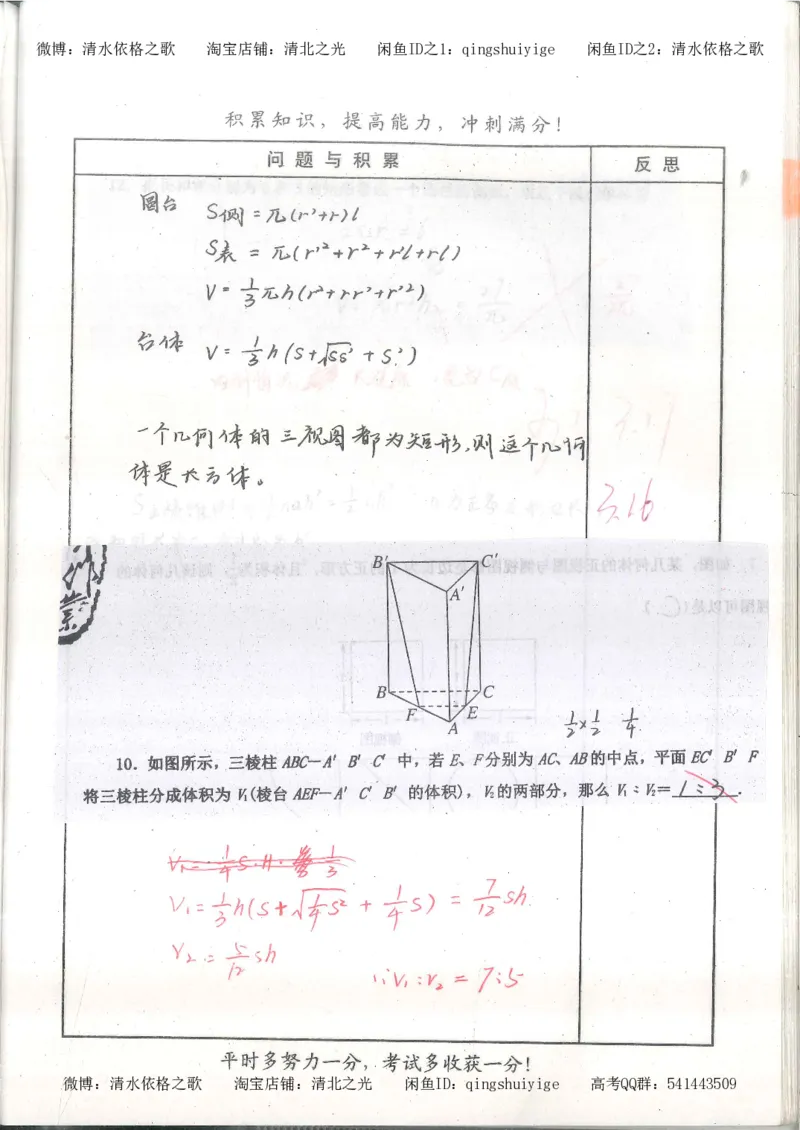 微博：清水依格之歌 淘宝店铺：清北之光 闲鱼ID之1：qingshuiyige 闲鱼ID之2：清水依格之歌
积累知识，提高能力，冲刺满分！
问题与积累 反思
圆台 S侧=π(r'+r)l
S表 = π(r'²+r²+r'l+rl)
V=1/3πh(r²+rr'+r'²)
台体 V=1/3h(S+√SS'+S')
一个几何体的三视图都为矩形,则这个几何
体是长方体。
3.16
B' C'
A'
B C
F E
A
1/2×1/2 1/4
10．如图所示，三棱柱ABC—A′B′C′中，若E、F分别为AC、AB的中点，平面EC′B′F
将三棱柱分成体积为V₁(棱台AEF—A′C′B′的体积)，V₂的两部分，那么V₁∶V₂=1:3．
V₁=1/3h(S+√1/4S²+1/4S)=7/12sh
V₂=5/12sh
∴V₁:V₂=7:5
平时多努力一分，考试多收获一分！
微博：清水依格之歌 淘宝店铺：清北之光 闲鱼ID：qingshuiyige 高考QQ群：541443509